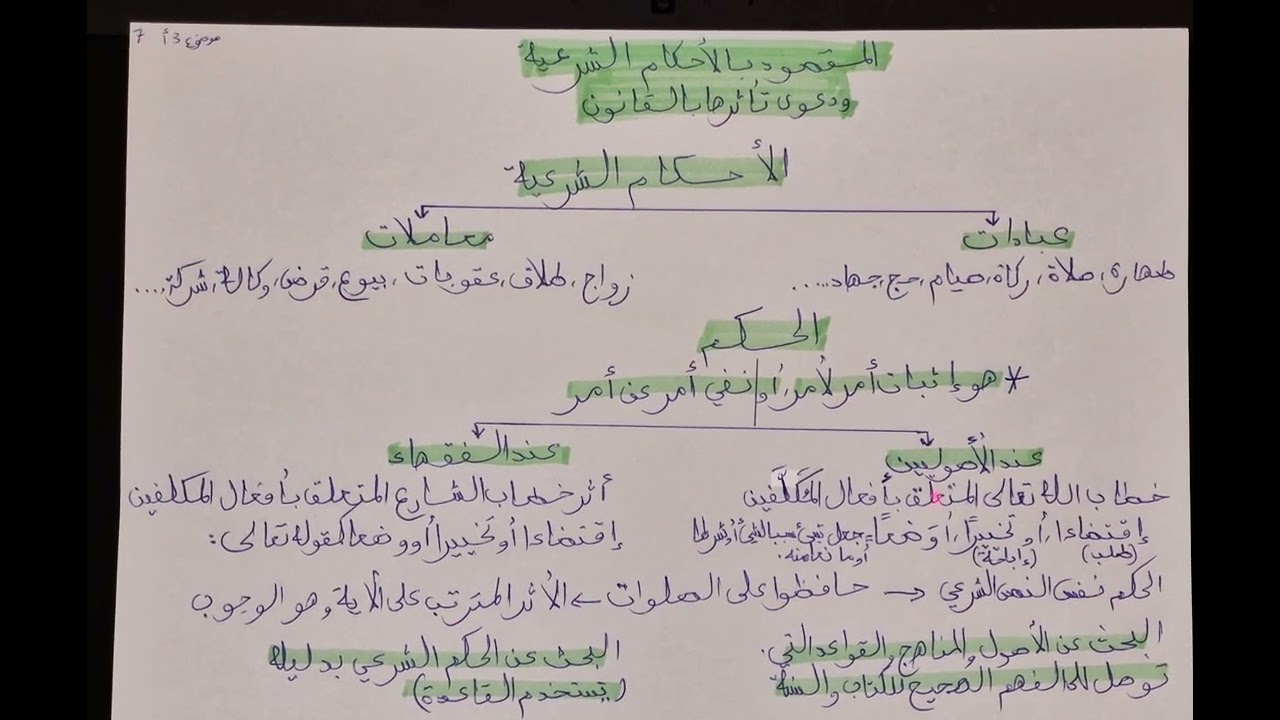 موضوع 3أ 7
المقصود بالأحكام الشرعية
ودعوى تأثرها بالقانون
الأحكام الشرعية
عبادات
معاملات
طهارة، صلاة، زكاة، صيام، حج، جهاد.....
زواج، طلاق، عقوبات، بيوع، قرض، وكالة، شركة، ....
الحكم
* هو إثبات أمر لأمر، أو نفي أمر عن أمر
عند الأصوليين
عند الفقهاء
خطاب الله تعالى المتعلق بأفعال المكلفين
إقتضاءا، أو تخييرًا، أو وَضعًا = جعل شيء سببا لشيء أو شرطا
(طلب) (إباحة) أو مانعا منه.
أثر خطاب الشارع المتعلق بأفعال المكلفين
إقتضاءا أو تخييرا أو وضعا كقوله تعالى:
الحكم نفس النص الشرعي ← حافظوا على الصلوات ← الأثر المترتب على الآية وهو الوجوب
البحث عن الأصول والمناهج والقواعد التي
توصل للفهم الصحيح للكتاب والسنة
البحث عن الحكم الشرعي بدليله
(يستخدم القاعدة)